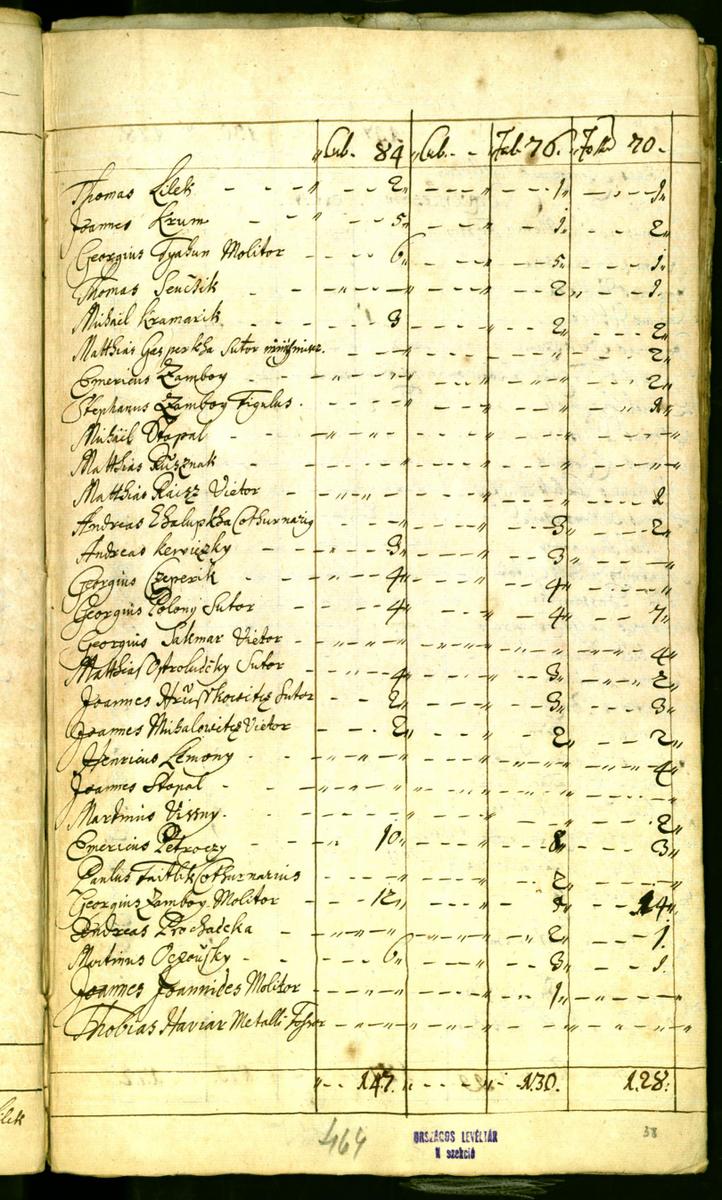 „Lab. 84 „Lab. - - „Lab. 76. „Latus 70.
Thomas Lilek - - - „ 2„ - - - „ - - 1„ - - - 1„
Joannes Krum - - - „ 5„ - - - „ - - 1„ - - - 2„
Georgius Tyahun Molitor - - - 6„ - - - „ - - 5„ - - - 1„
Thomas Senčik - „ - - „ - - - „ - - 2„ - - - 1.
Michael Kramarik - - - 3 - - - „ - - 2„ - - - 2„
Matthias Gasperkha Sutor - - „ - - - „ - - „ - - - 2„
Emericus Zamboy - „ - - „ - - - „ - - „ - - - 2„
Stephanus Zamboy Figulus. - - „ - - - „ - - „ - - „ 1„
Michael Stopal - - „ - „ - - „ - - - „ - - „ - - - „
Matthias Rusznak - - - „ - - - „ - - „ - - - „
Matthias Raisz Vietor - - „ - „ - - - „ - - „ - - - 1
Andreas Chalupkha Cothurnarius - - „ - - - „ - - 3„ - - - 2„
Andreas Kerviczky - - - „ 3„ - - - „ - - 3„ - - - „
Georgius Czeperik - - „ - 4„ - - - „ - - 4„ - - - „
Georgius Polony Sutor - - - 4„ - - - „ - - 4„ - - - 7„
Georgius Sakmar Vietor - - „ - „ - - - „ - - „ - - - 4„
Matthias Ostroluczky Sutor - „ - 4„ - - - „ - - 3„ - - - 2„
Joannes Hrusskowitz Sutor - - 2„ - - - „ - - 3„ - - - 3„
Joannes Mihalowitz Vietor - - 2„ - - - „ - - 2„ - - - 2„
Henricus Lemony - - „ - „ - - - „ - - „ - - - 4„
Joannes Stopal - - - „ - - - „ - - „ - - - „
Martinus Vissny. - - - „ - - - „ - - „ - - - 2„
Emericus Petroczy - - „ 10„ - - - „ - - 8„ - - - 3„
Paulus Cothurnarius - - „ - - - „ - - 2„ - - - „
Georgius Zamboy Molitor - - - 12„ - - - „ - - „ 14„
Andreas Prochaczka - „ - „ - - - „ - - 2„ - - - 1.
Martinus Oczovsky - - - 6„ - - - „ - - 3„ - - - 1.
Joannes Joannides Molitor - - „ - - - „ - - 1„ - - - „
Thobias Haviar Metalli Fossor - - „ - - - „ - - „ - - - „
„ - - 147. - - - „ - 130. 128.
464
ORSZÁGOS LEVÉLTÁR
N szekció
38